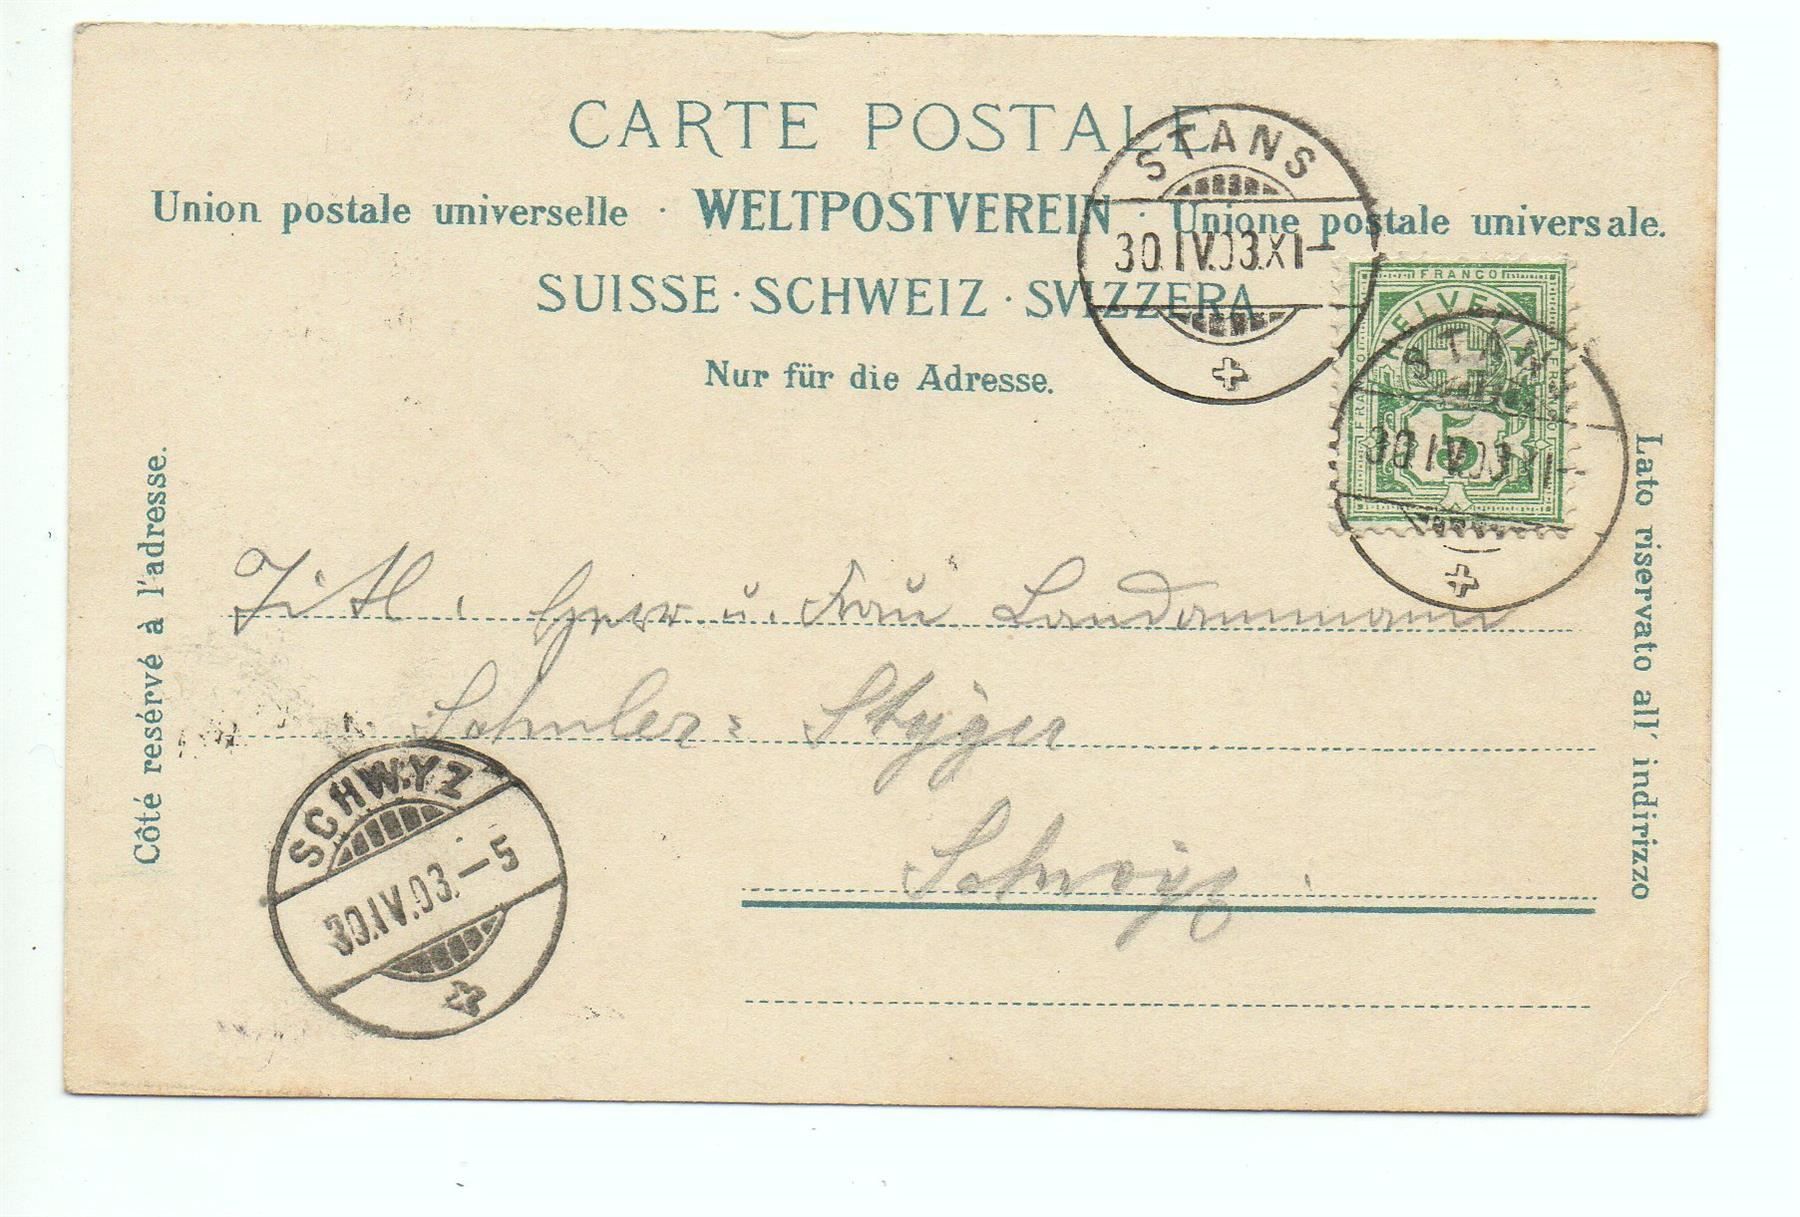 CARTE POSTALE
Union postale universelle · WELTPOSTVEREIN · Unione postale universale.
SUISSE · SCHWEIZ · SVIZZERA
Nur für die Adresse.
STANS
30.IV.03.XI–
FRANCO
HELVETIA
FRANCO
FRANCO
5
STANS
30.IV.03.XI–
Côté resérvé à l'adresse.
Lato riservato all' indirizzo
Titl. Herr u. Frau Landammann
Schuler-Styger
Schwyz.
SCHWYZ
30.IV.03.–5